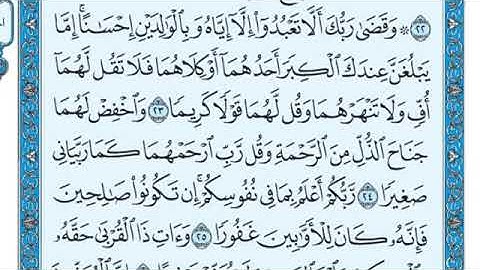 ٢٢ ۞ وَقَضَىٰ رَبُّكَ أَلَّا تَعْبُدُوٓا۟ إِلَّآ إِيَّاهُ وَبِٱلْوَٰلِدَيْنِ إِحْسَٰنًا ۚ إِمَّا
يَبْلُغَنَّ عِندَكَ ٱلْكِبَرَ أَحَدُهُمَآ أَوْ كِلَاهُمَا فَلَا تَقُل لَّهُمَآ
أُفٍّ وَلَا تَنْهَرْهُمَا وَقُل لَّهُمَا قَوْلًا كَرِيمًا ٢٣ وَٱخْفِضْ لَهُمَا
جَنَاحَ ٱلذُّلِّ مِنَ ٱلرَّحْمَةِ وَقُل رَّبِّ ٱرْحَمْهُمَا كَمَا رَبَّيَانِى
صَغِيرًا ٢٤ رَّبُّكُمْ أَعْلَمُ بِمَا فِى نُفُوسِكُمْ ۚ إِن تَكُونُوا۟ صَٰلِحِينَ
فَإِنَّهُۥ كَانَ لِلْأَوَّٰبِينَ غَفُورًا ٢٥ وَءَاتِ ذَا ٱلْقُرْبَىٰ حَقَّهُۥ